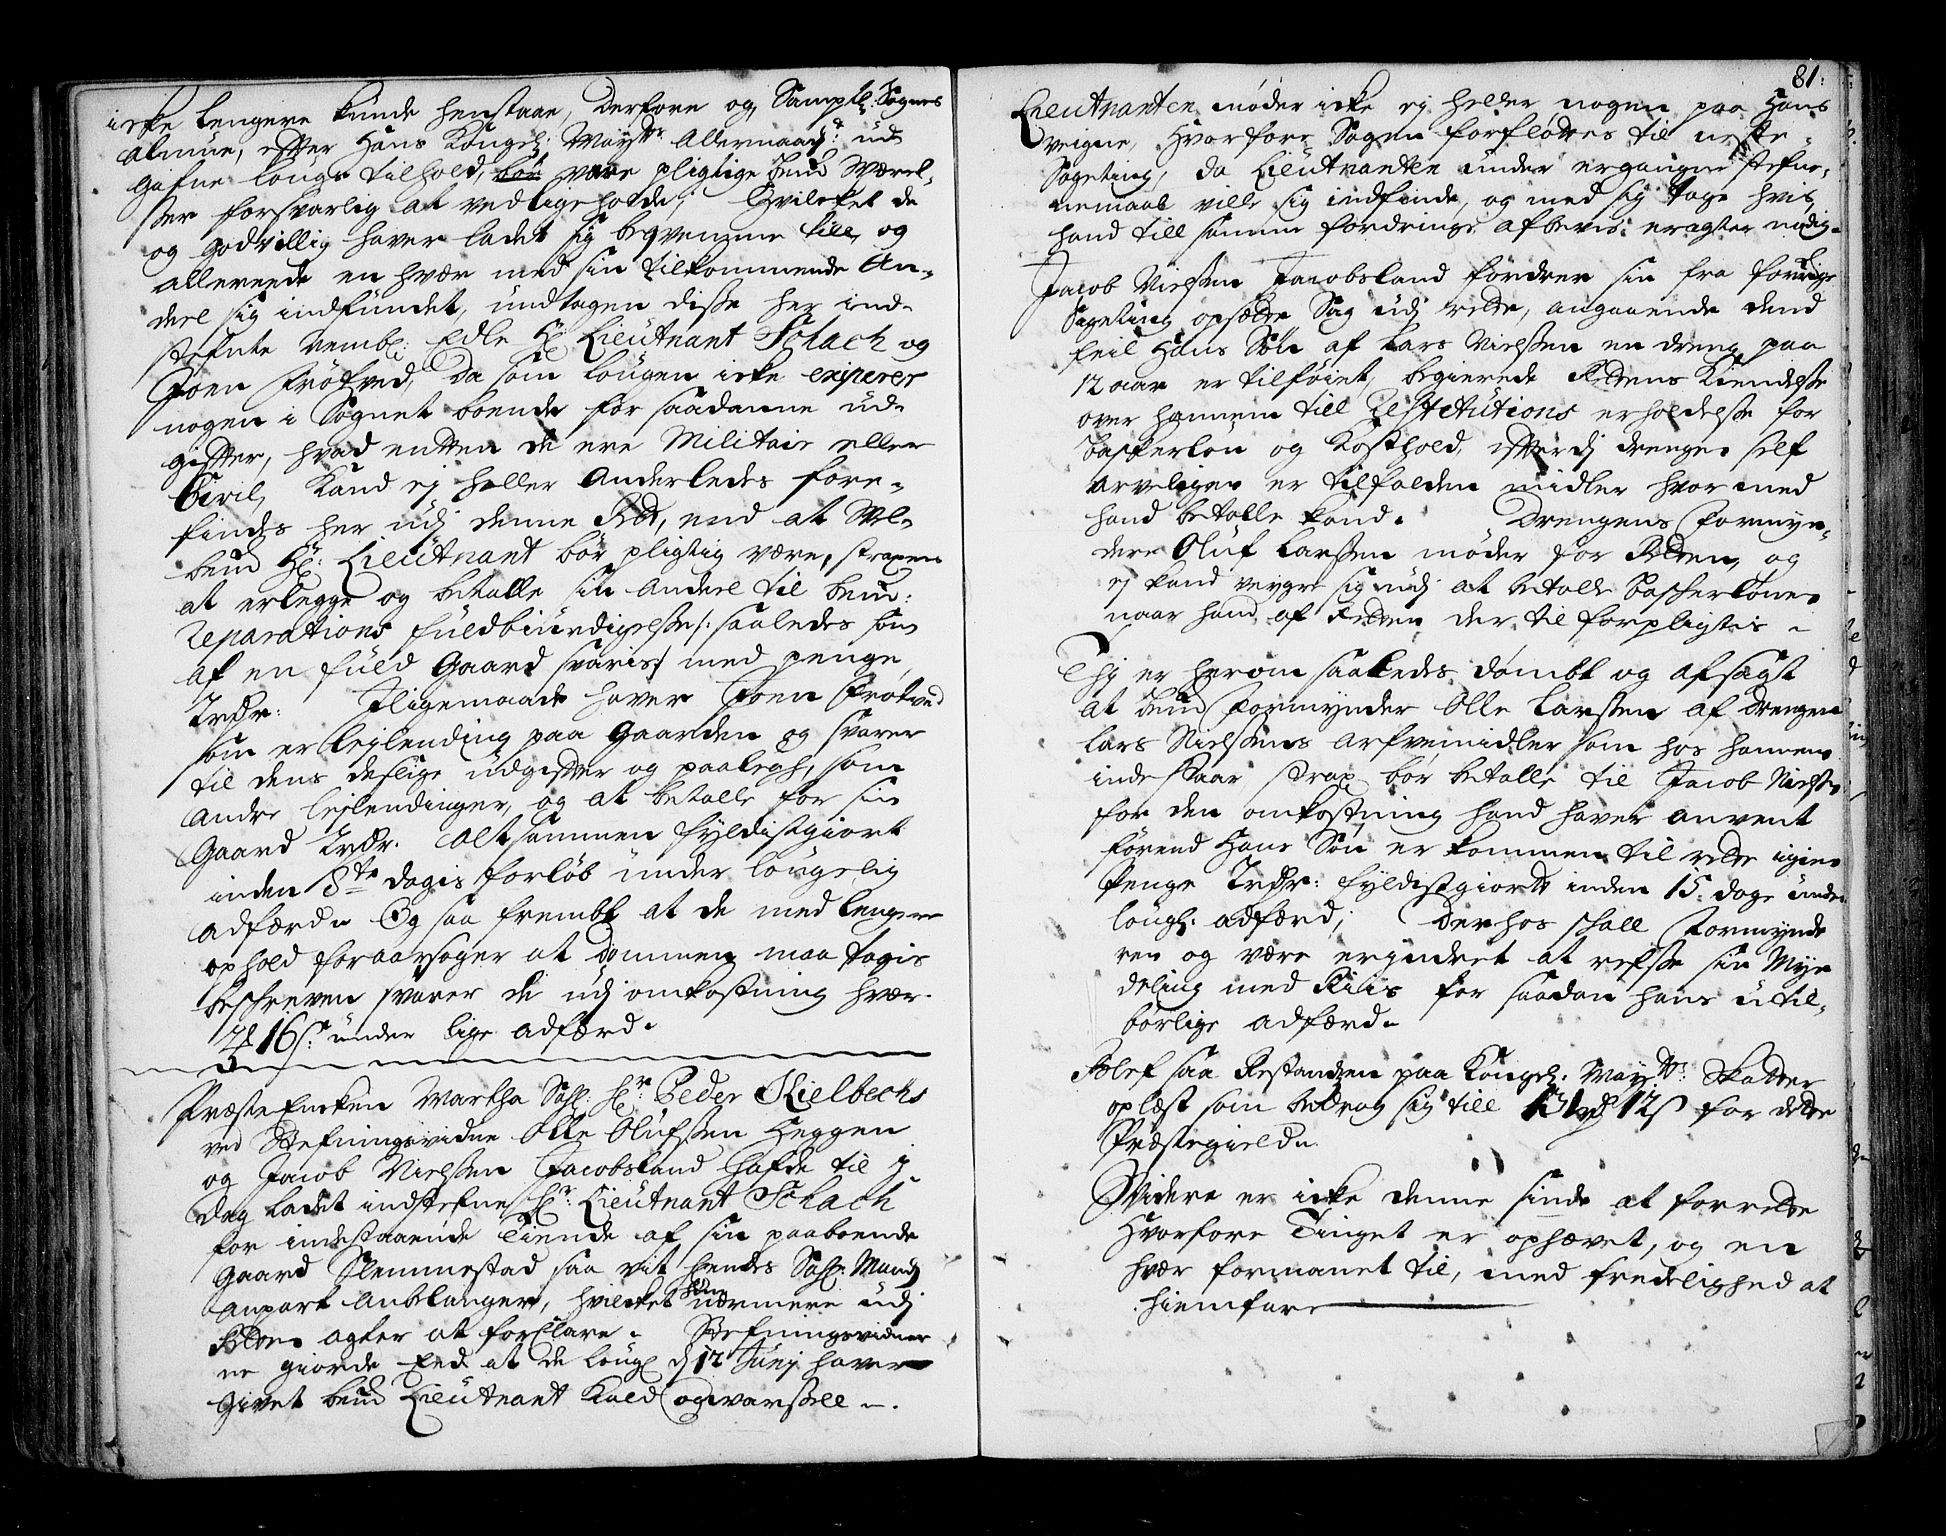 icke lengere kunde henstaae, Derfore og Samptl: Sognes
almue, efter Hans Kongel: Mayts: Allernaad: ud
gafne lougs tilhold, bør være pligtige bemt Værel„
ser forsvarlig at vedligeholde; Hvilcket de
og godvillig haver ladet sig beqvemme till, og
allereede en hver med sin tilkommende An„
deel sig indfundet, undtagen disse her ind„
stefnte nembl: Edle Hr: Lieutnant Schach og
Joen Frøtved, Da som Lougen icke exiperer
nogen i Sognet boende for saadanne ud„
gifter, hvad enten de ere Militair eller
Civil, Kand ej heller anderledes fore„
findes her udj denne Rett, end at Vel„
bemt Hr: Lieutnant bør pligtig være, straxen
at erlegge og betalle sin andeel til bemt:
Reparations fuldbiurdigelsse /: saaledes som
af en fuld Gaard svaris :/ med penge,
2rdr: Iligemaade haver Joen Frøtved
som er leylending paa Gaarden og svarer
til dens deslige udgifter og paalegh, som
andre leylendinger, og at betalle for sin
Gaard 2rdr. Alt sammen fyldistgiort
inden 8te dagis forløb under lougelig
adfærd. Og saa frembt at de med lengere
ophold foraarsager at dommen maa tagis
beskreven svarer de udj omkostning hver.
16 s: under lige adfærd.
PræsteEncken Martha Sahl: Hr: Peder Kielbechs
ved Stefningsvidne Olle Olufssen Heggen
og Jacob Nielssen Jacobsland hafde til J
dag ladet indstefne Hr: Lieutnant Schach
for indestaaende Tiende af sin paaboende
Gaard Slemmestad saa vit hendes Sahl: Mands
anpart anbelanger, hvilcket hun nærmere udj
Retten agter at forklare. Stefningsvidner
ne giorde Eed at de lougl d 12 Junj haver
givet bemt Lieutnant Kald og varssell.
81:
Lieutnanten møder icke ej heller nogen paa Hans
veigne, Hvorfore Sagen forfløttes til neste
Sageting, da Lieutnanten under ergangne stefne„
nemaal ville sig indfinde, og med sig tage hvis
hand till samme fordrings afbeviis eragter nødig.
Jacob Nielssen Jacobsland fordrer sin fra forrige
Sageting opsatte Sag udj rette, angaaende dend
feil Hans Søn af Lars Nielssen en dreng paa
12 aar er tilføiet, begierede Rettens Kiendelsse
over hannem till Restitutions erholdelsse for
baskerløn og Kosthold, efterdj drengen self
arveligen er tilfalden midler hvor med
hand betalle kand. Drengens Formyn„
dere Oluf Larssen møder for Retten, og
ej kand veygre sig udj at betalle baskerlønen
naar hand af Retten der til forpligtis
Thj er herom saaledes dømbt og afsagt
at bemt Formynder Olle Larssen af drengen
Lars Nielssens arfvemidler som hos hannem
indestaar strax bør betalle til Jacob Nielssen
for den omkostning hand haver anvent
førend Hans Søn er kommen til rette igien
Penge 2rdr: fyldistgiordt inden 15. dage under
lougl: adfærd; Derhos skall Formynde
ren og være erindret at refse sin Myn
deling med Riis for saadan hans util„
børlige adfærd.
Blef saa Restanzen paa Kongel: Mayts: Skatter
oplæst som bedrog sig till 131 rdr 12 s for dette
Præstegield.
Videre er icke denne sinde at forrette
Hvorfore Tinget er ophævet, og en
hver formanet til, med fredelighed at
hiemfare